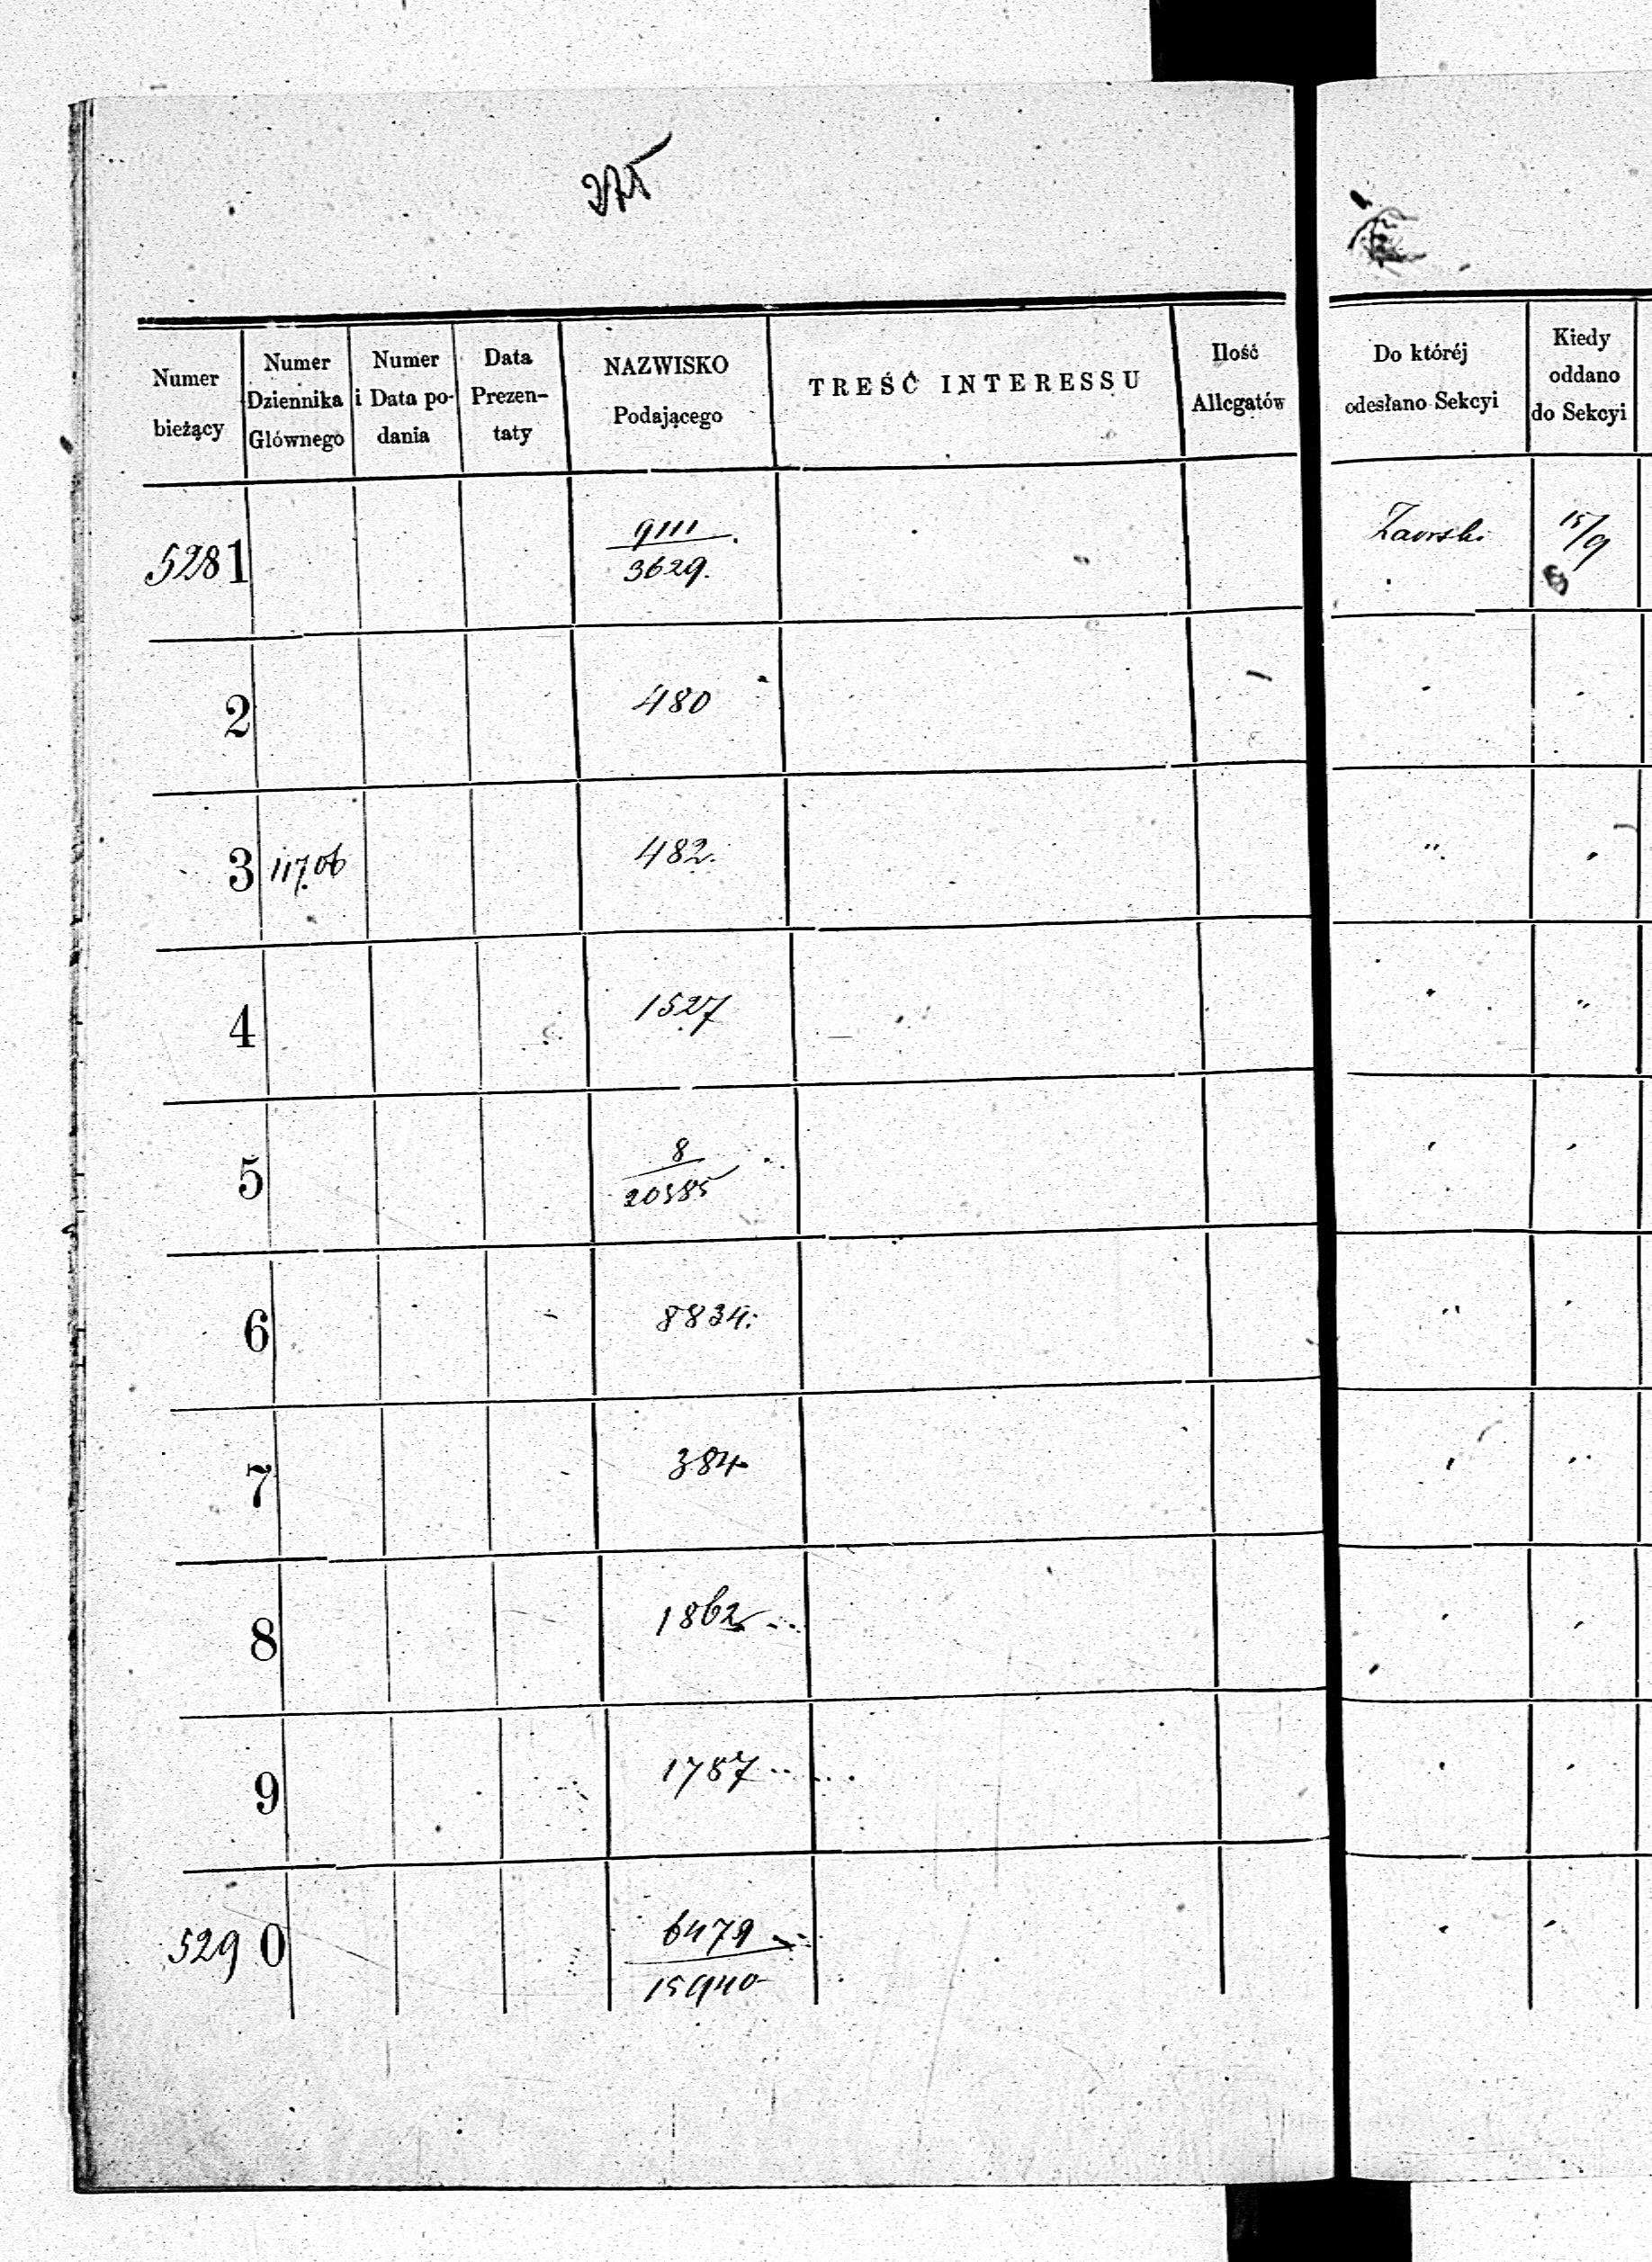 275
Numer bieżący | Numer Dziennika Głównego | Numer i Data podania | Data Prezentaty | NAZWISKO Podającego | TREŚĆ INTERESSU | Ilość Allegatów | Do któréj odesłano Sekcyi | Kiedy oddano do Sekcyi
5281 9111/3629. 15/9
2 480
3 11706 482. "
4 1527 "
5 8/20385
6 8834. "
7 384
8 1862
9 1787
5290 6479/15940